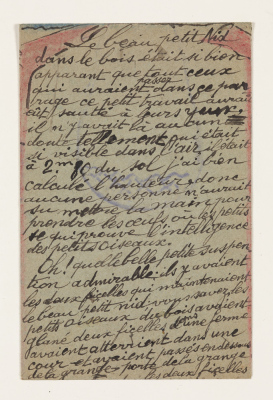 Le beau petit Nid
dans le bois était si bien
apparant que tout ceux
passer
qui auraient dans ce par
rage ce petit travait aurai
eut sauté à leurs yeux.
il n'y avait là aucun
doute tellement qui était
si visible dans l'air, il était
à 2m 80 du sol j'ai bien
calculé l'hauteur donc
aucune personne n'aurait
su mettre la main pour
prendre les oeufs ou les petits
se qui prouve l'intelligence
des petits oiseaux.
Oh! quelle belle petite suspen
tion admirable ils y avaient
les deux ficelles qui maintenaient
le beau petit nid vous savez les
petits oiseaux du bois avaient
glané deux ficelles dans une ferme
avaient atterrient dans une
cour et avaient passés en dessous
de la grange porte de la grange
les deux ficelles